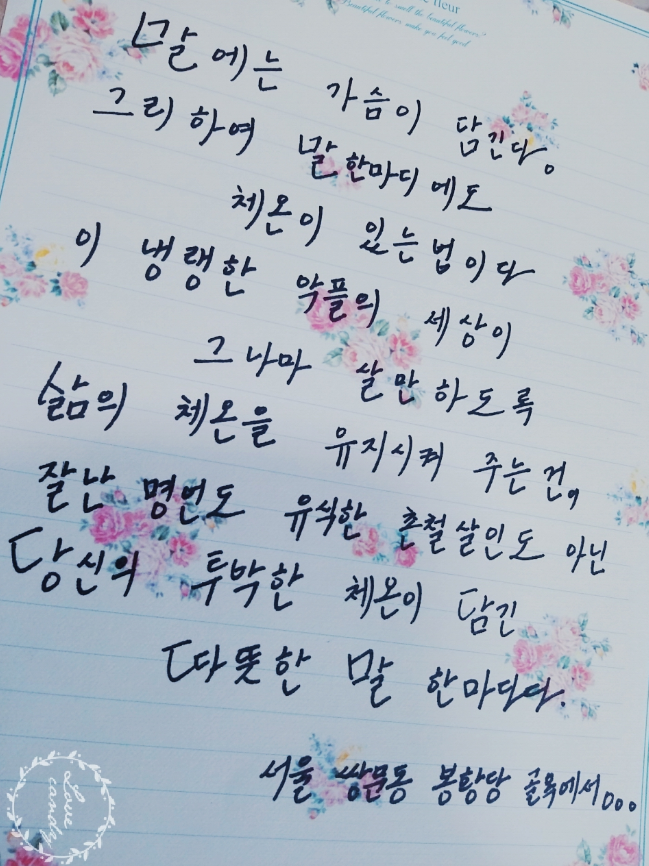 fleur
to smell the beautiful flowers."
Beautiful flowers make you feel good
말에는 가슴이 담긴다。
그리하여 말 한마디에도
체온이 있는 법이다
이 냉랭한 악플의 세상이
그나마 살만하도록
삶의 체온을 유지시켜 주는건,
잘난 명언도 유식한 촌철살인도 아닌
당신의 투박한 체온이 담긴
따뜻한 말 한마디다.
서울 쌍문동 봉황당 골목에서。。。
Love
candy